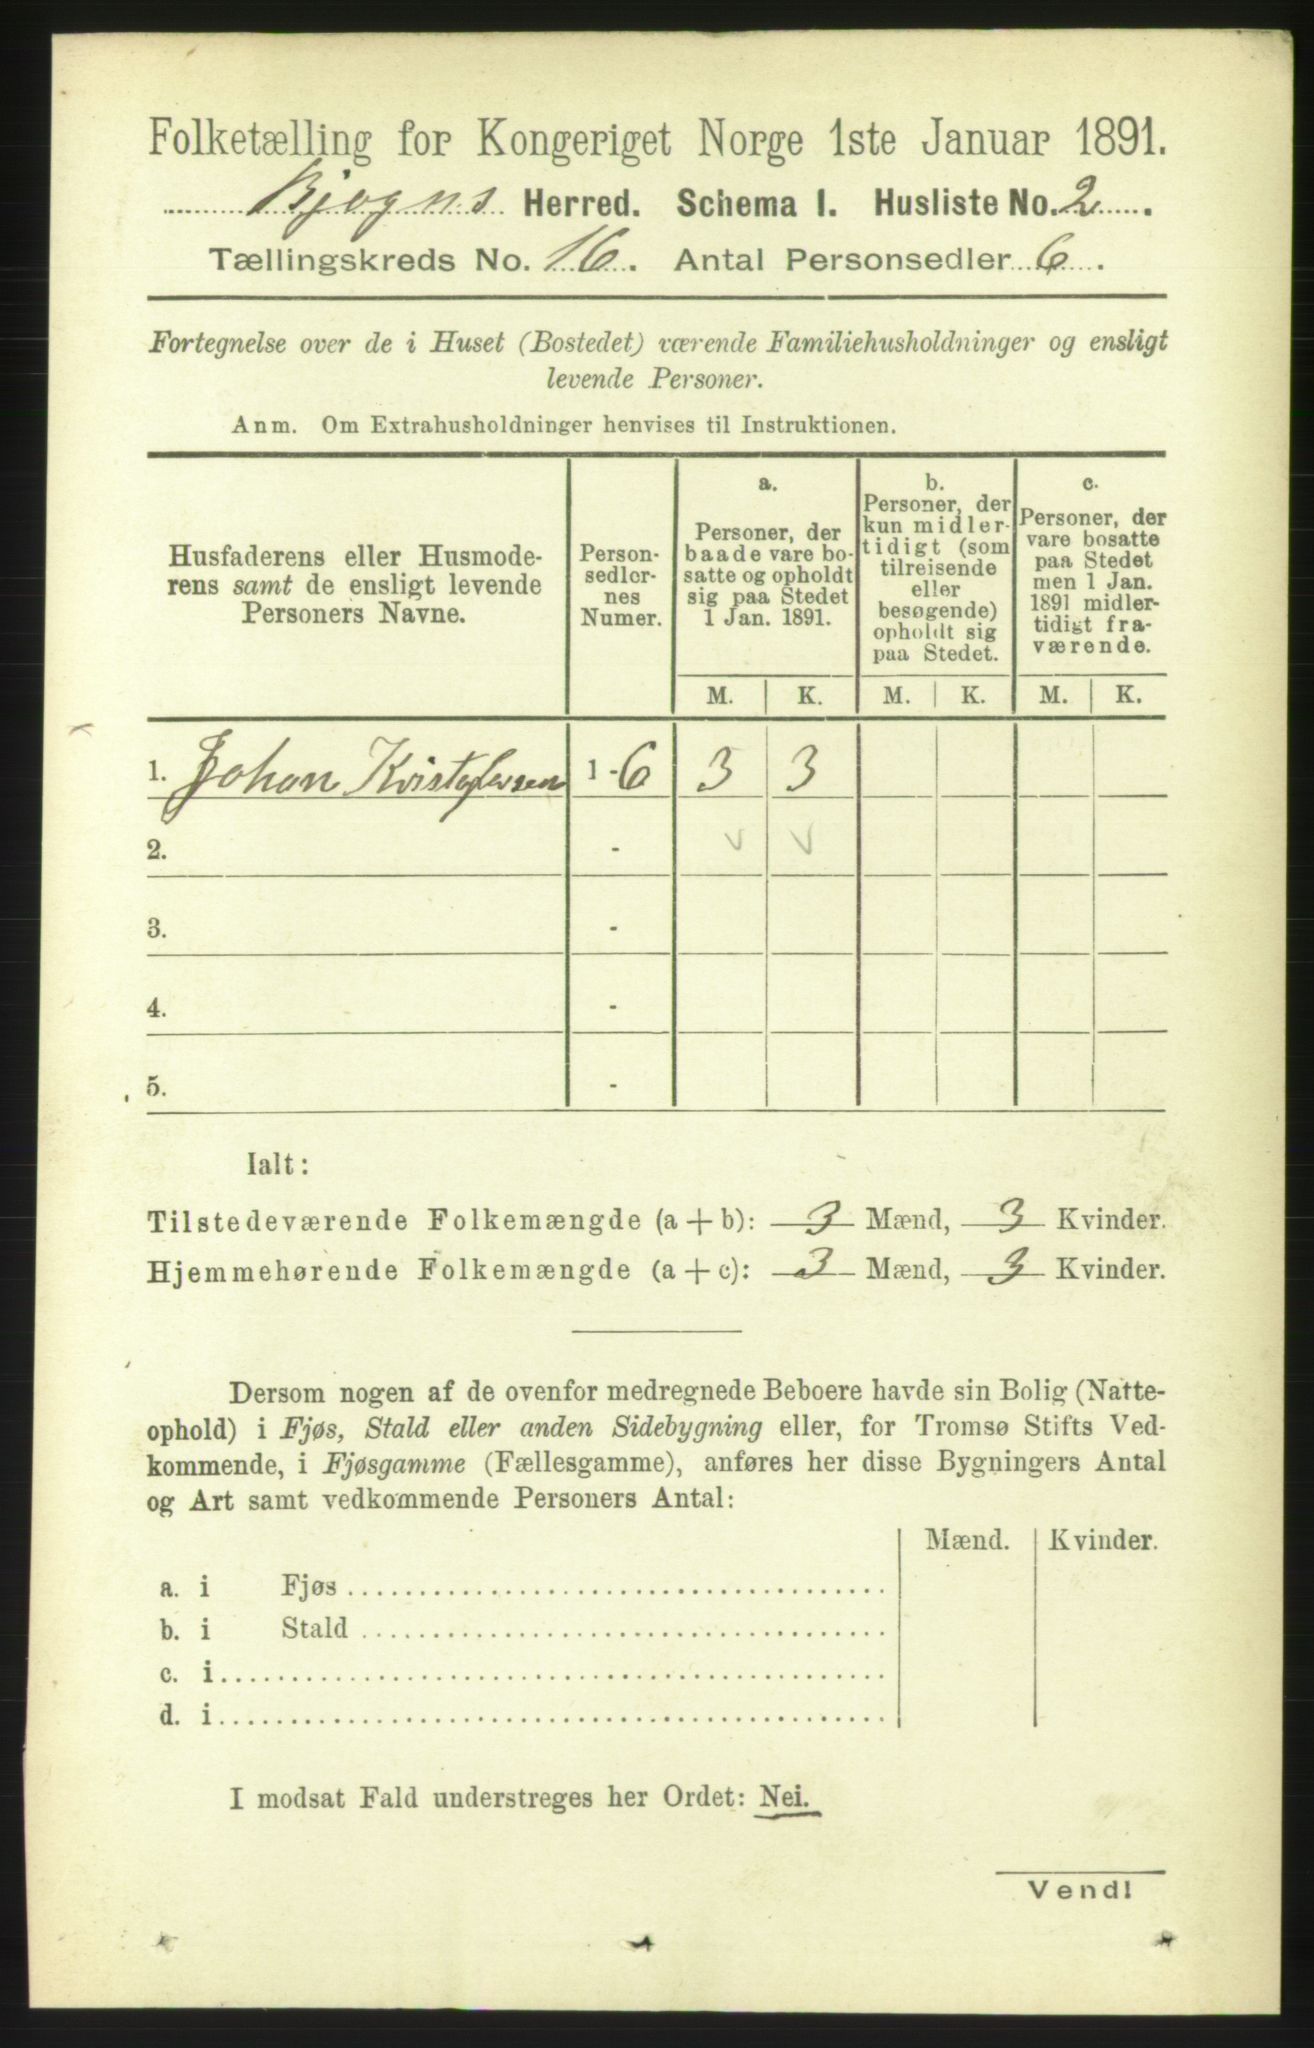 Folketælling for Kongeriget Norge 1ste Januar 1891.
Bjogns Herred. Schema I. Husliste No. 2.
Tællingskreds No. 16. Antal Personsedler 6.
Fortegnelse over de i Huset (Bostedet) værende Familiehusholdninger og ensligt
levende Personer.
Anm. Om Extrahusholdninger henvises til Instruktionen.
Husfaderens eller Husmode-
rens samt de ensligt levende
Personers Navne.
Person-
sedler-
nes
Numer.
a.
Personer, der
baade vare bo-
satte og opholdt
sig paa Stedet
1 Jan. 1891.
b.
Personer, der
kun midler-
tidigt (som
tilreisende
eller
besøgende)
opholdt sig
paa Stedet.
c.
Personer, der
vare bosatte
paa Stedet
men 1 Jan.
1891 midler-
tidigt fra-
værende.
M. K. M. K. M. K.
1. Johan Kristofersen 1-6 3 3
2. - v v
3. -
4. -
5. -
Ialt:
Tilstedeværende Folkemængde (a + b): 3 Mænd, 3 Kvinder.
Hjemmehørende Folkemængde (a + c): 3 Mænd, 3 Kvinder.
Dersom nogen af de ovenfor medregnede Beboere havde sin Bolig (Natte-
ophold) i Fjøs, Stald eller anden Sidebygning eller, for Tromsø Stifts Ved-
kommende, i Fjøsgamme (Fællesgamme), anføres her disse Bygningers Antal
og Art samt vedkommende Personers Antal:
Mænd. Kvinder.
a. i Fjøs
b. i Stald
c. i
d. i
I modsat Fald understreges her Ordet: Nei.
Vend!